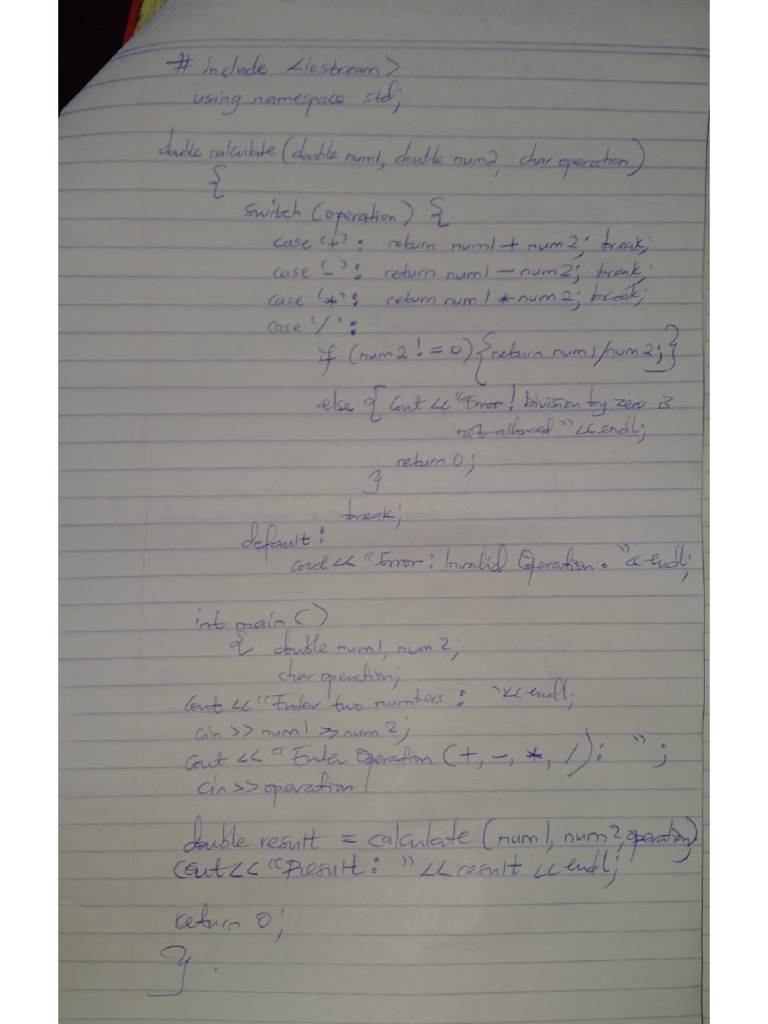 # include <iostream>
using namespace std;
double calculate (double num1, double num2, char operation)
{
switch (operation) {
case '+': return num1 + num2; break;
case '-': return num1 - num2; break;
case '*': return num1 * num2; break;
case '/':
if (num2 != 0) {return num1/num2;}
else { cout << "Error! Division by zero is
not allowed" << endl;
return 0;
}
break;
default:
cout << "Error: Invalid Operation." << endl;
int main ()
{ double num1, num2;
char operation;
cout << "Enter two numbers: " << endl;
cin >> num1 >> num2;
cout << "Enter Operation (+, -, *, /): ";
cin >> operation
double result = calculate (num1, num2, operation)
cout << "Result: " << result << endl;
return 0;
}